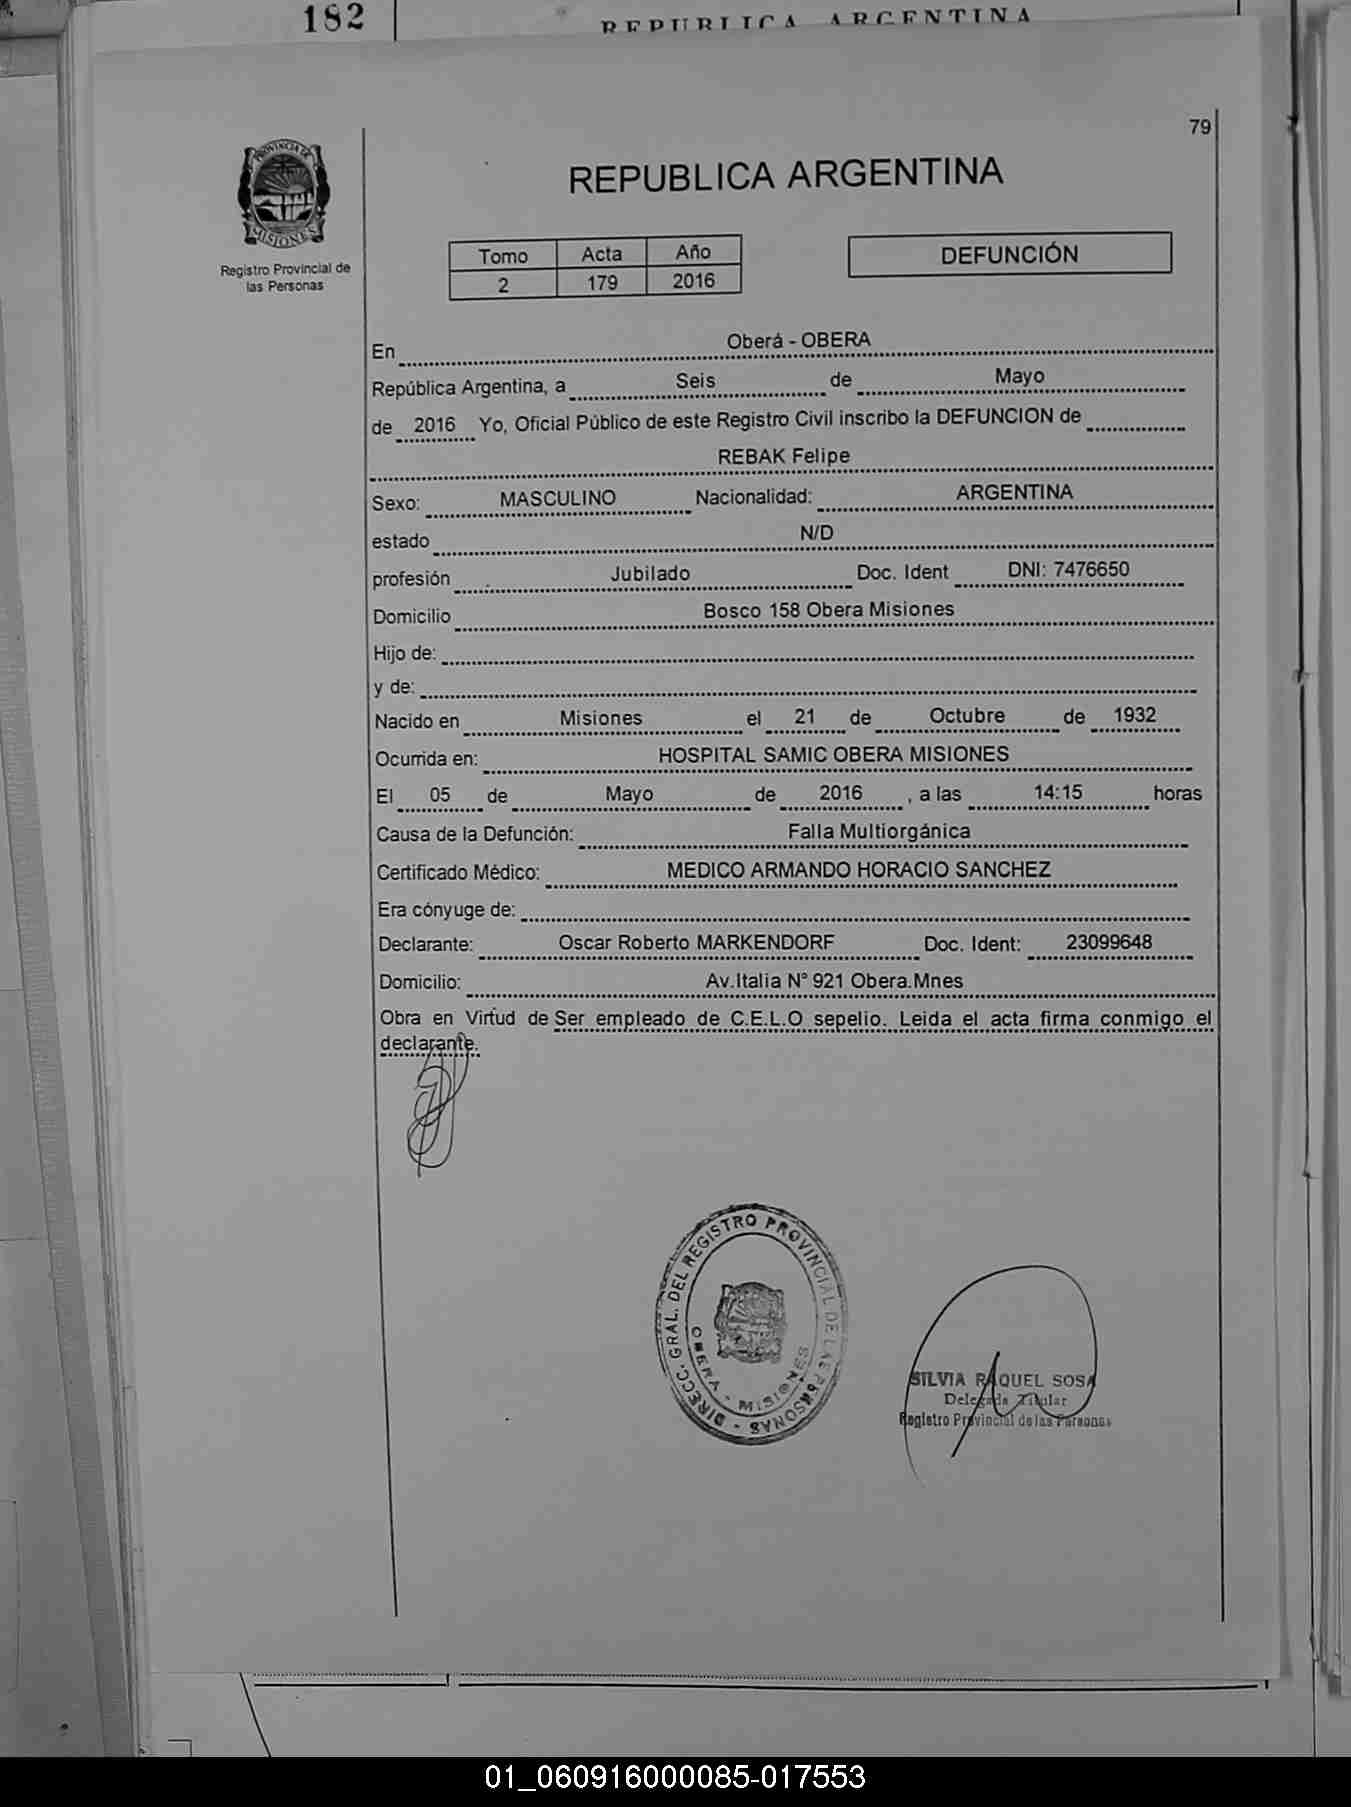 182
REPUBLICA ARGENTINA
79
PROVINCIA DE
MISIONES
Registro Provincial de
las Personas
REPUBLICA ARGENTINA
Tomo Acta Año
2 179 2016
DEFUNCIÓN
En Oberá - OBERA
República Argentina, a Seis de Mayo
de 2016 Yo, Oficial Público de este Registro Civil inscribo la DEFUNCION de
REBAK Felipe
Sexo: MASCULINO Nacionalidad: ARGENTINA
estado N/D
profesión Jubilado Doc. Ident DNI: 7476650
Domicilio Bosco 158 Obera Misiones
Hijo de:
y de:
Nacido en Misiones el 21 de Octubre de 1932
Ocurrida en: HOSPITAL SAMIC OBERA MISIONES
El 05 de Mayo de 2016 , a las 14:15 horas
Causa de la Defunción: Falla Multiorgánica
Certificado Médico: MEDICO ARMANDO HORACIO SANCHEZ
Era cónyuge de:
Declarante: Oscar Roberto MARKENDORF Doc. Ident: 23099648
Domicilio: Av.Italia N° 921 Obera.Mnes
Obra en Virtud de Ser empleado de C.E.L.O sepelio. Leida el acta firma conmigo el
declarante.
DIRECC. GRAL. DEL REGISTRO PROVINCIAL DE LAS PERSONAS -
OBERA - MISIONES
SILVIA RAQUEL SOSA
Delegada Titular
Registro Provincial de las Personas
01_060916000085-017553